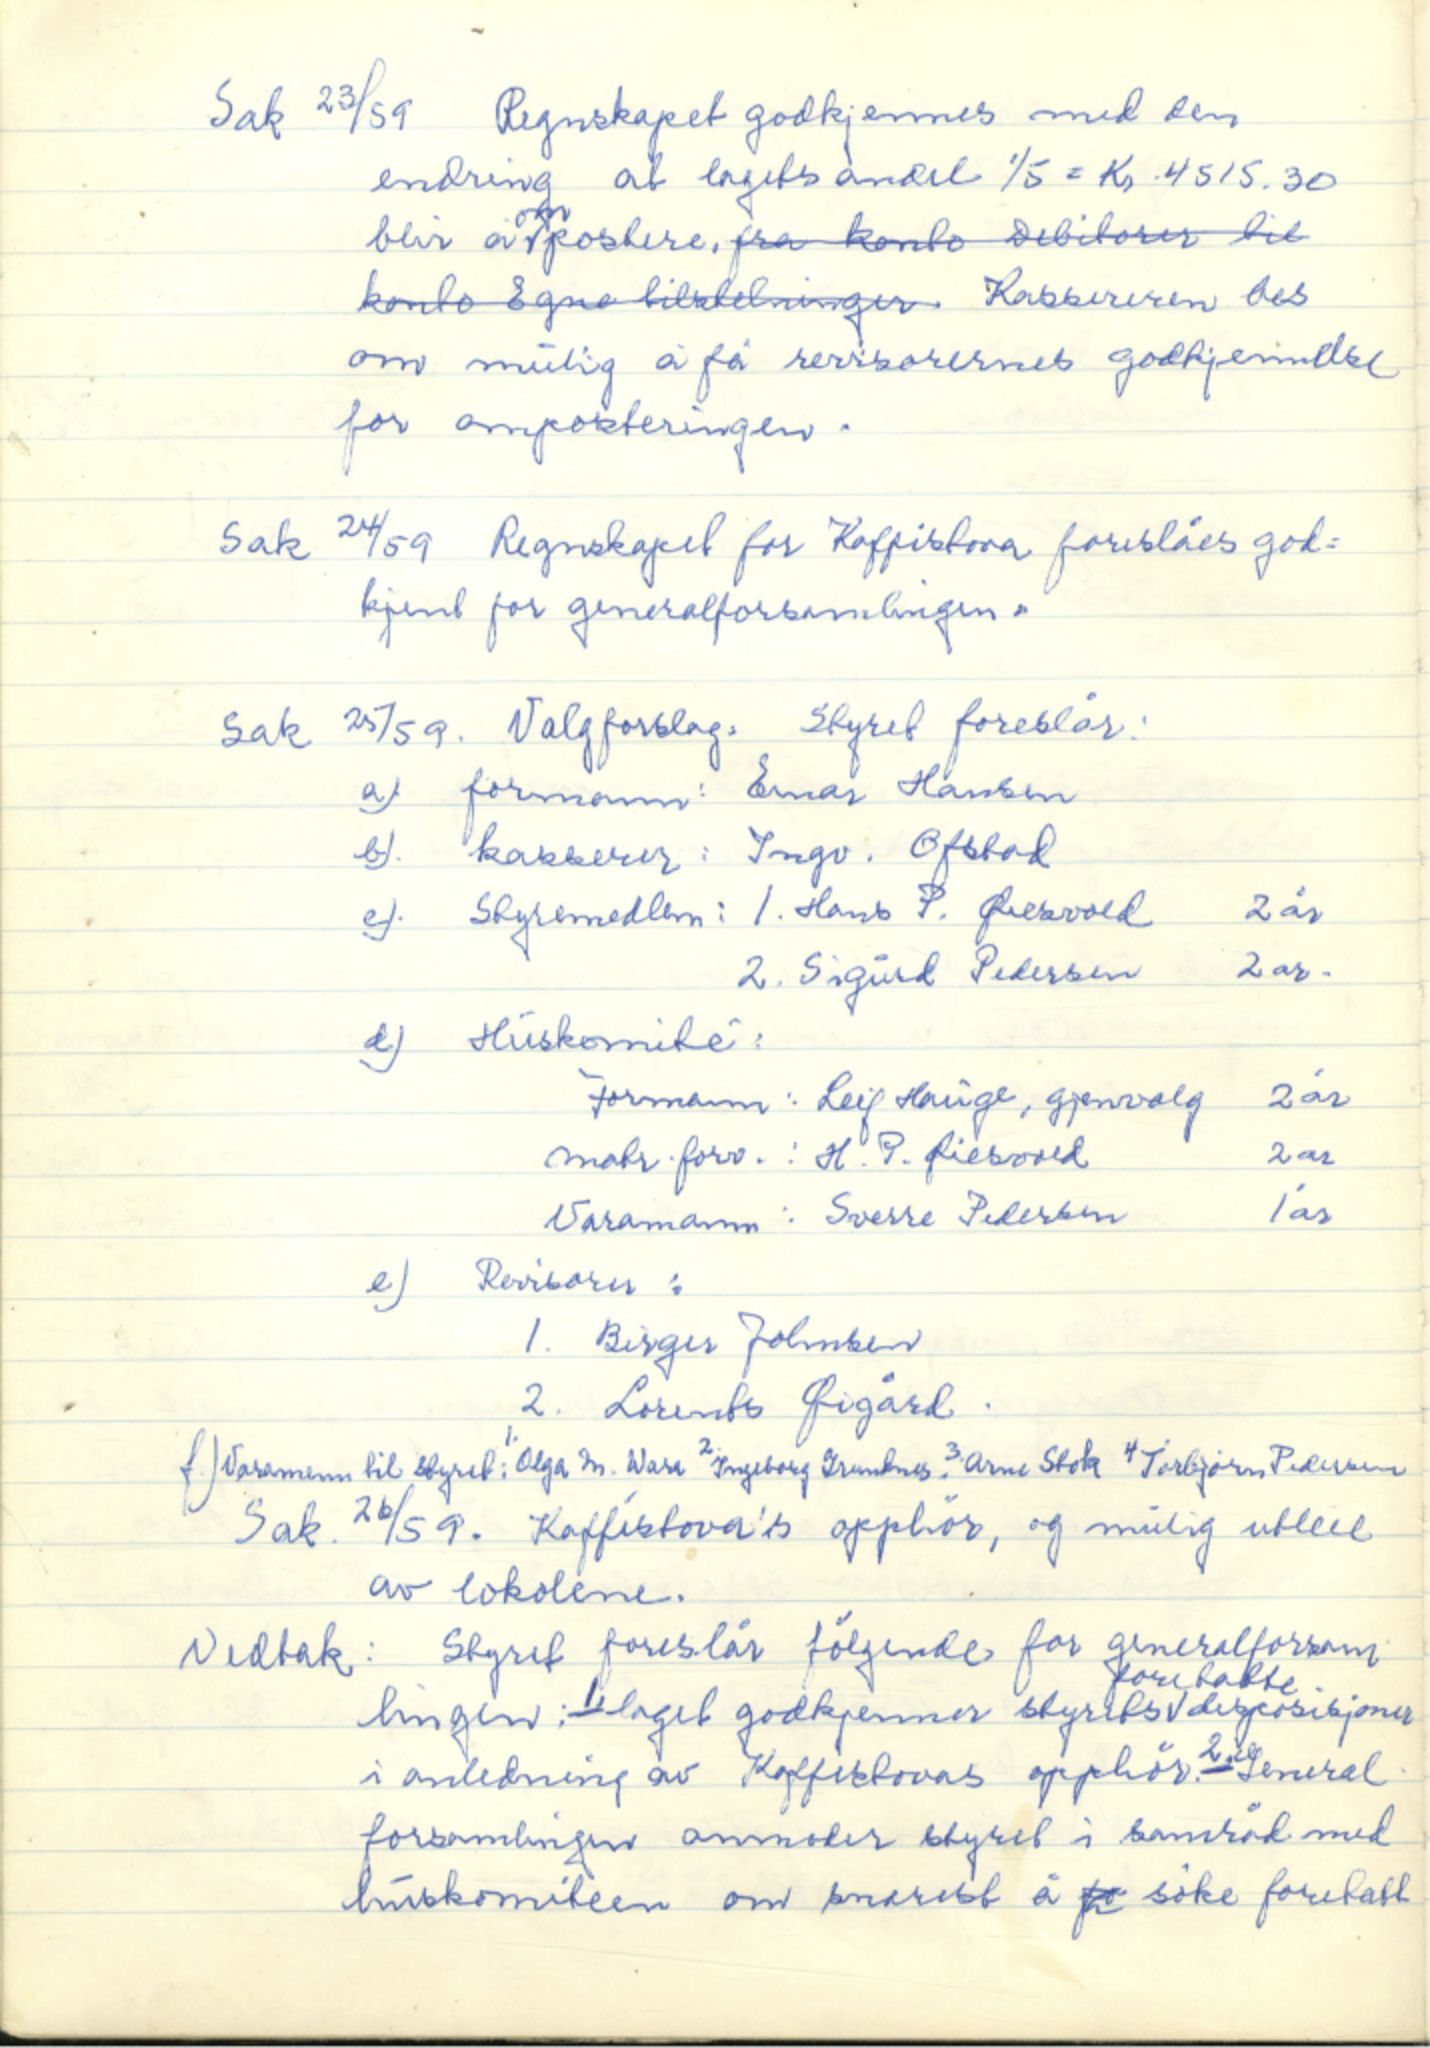 Sak 23/59 Regnskapet godkjennes med den
endring at lagets andel 1/5 = Kr. 4515.30
blir å ompostere. fra konto Debitorer til
konto Egne tilstelninger. Kassereren bes
om mulig å få revisorernes godkjennelse
for omposteringen.
Sak 24/59 Regnskapet for Kaffistova foreslåes god=
kjent for generalforsamlingen.
Sak 25/59. Valgforslag. Styret foreslår:
a) formann: Einar Hansen
b). kasserer: Ingv. Ofstad
c). Styremedlem: 1. Hans P. Øiesvold 2 år
2. Sigurd Pedersen 2 ar.
d) Huskomité:
Formann: Leif Hauge, gjenvalg 2 år
matr. forv.: H. P. Øiesvold 2 ar
Varamann: Sverre Pedersen 1 år
e) Revisorer:
1. Birger Johnsen
2. Lorents Øigård.
f.) Varamenn til styret: 1. Olga M. Wara 2. Ingeborg 3. Arne Stok 4 Torbjørn Pedersen
Sak. 26/59. Kaffistova's opphör, og mulig utleie
av lokalene.
Vedtak: Styret foreslår fölgende for generalforsam
lingen: 1. laget godkjenner styrets foretatte disposisjoner
i anledning av Kaffistovas opphör. 2. General
forsamlingen anmoder styret i samråd med
huskomiteen om snarest å få söke foretatt